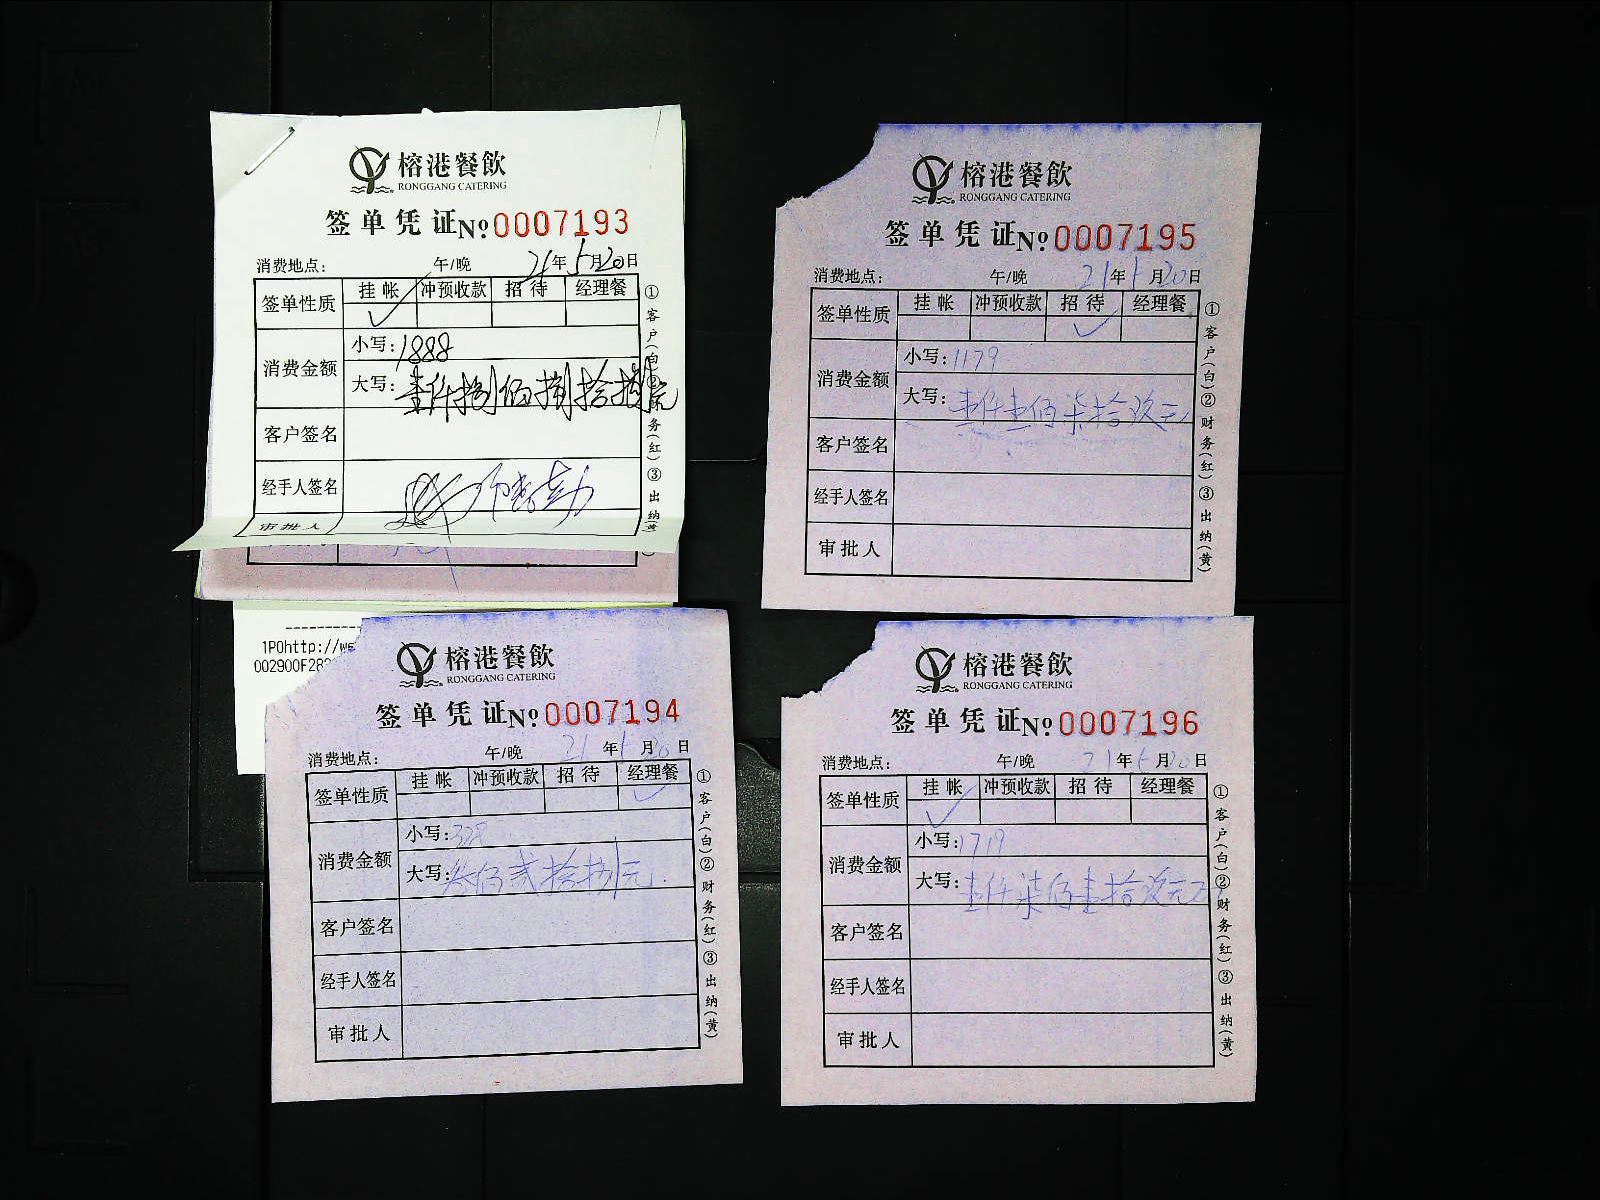 榕港餐飲
RONGGANG CATERING
签单凭证№0007193
消费地点: 午/晚 21年5月20日
签单性质 挂帐 冲预收款 招待 经理餐
✓
消费金额 小写:1888
大写:壹仟捌佰捌拾捌元
客户签名
经手人签名
审批人
①客户(白)②财务(红)③出纳(黄)
榕港餐飲
RONGGANG CATERING
签单凭证№0007195
消费地点: 午/晚 21年5月20日
签单性质 挂帐 冲预收款 招待 经理餐
✓
消费金额 小写:1179
大写:壹仟壹佰柒拾玖元
客户签名
经手人签名
审批人
①客户(白)②财务(红)③出纳(黄)
1P0http://we
002900F282
榕港餐飲
RONGGANG CATERING
签单凭证№0007194
消费地点: 午/晚 21年5月20日
签单性质 挂帐 冲预收款 招待 经理餐
✓
消费金额 小写:328
大写:叁佰贰拾捌元
客户签名
经手人签名
审批人
①客户(白)②财务(红)③出纳(黄)
榕港餐飲
RONGGANG CATERING
签单凭证№0007196
消费地点: 午/晚 21年5月20日
签单性质 挂帐 冲预收款 招待 经理餐
✓
消费金额 小写:1719
大写:壹仟柒佰壹拾玖元
客户签名
经手人签名
审批人
①客户(白)②财务(红)③出纳(黄)